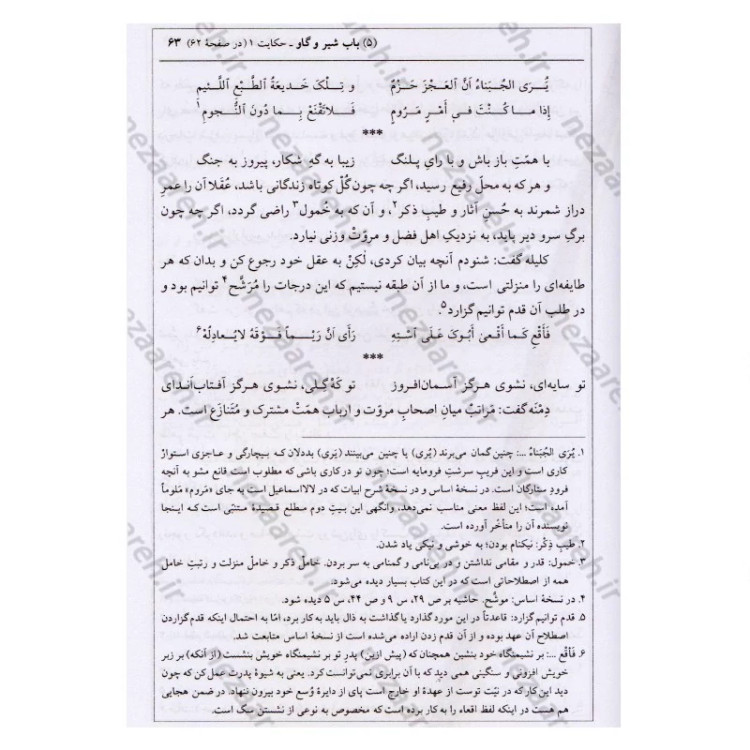 (۵) باب شیر و گاو ـ حکایت ۱ (در صفحهٔ ۶۲) ۶۳
یُرَی الجُبَناءُ اَنَّ العَجْزَ حَزْمٌ و تِلْکَ خَدیعَةُ الطَّبْعِ اللَّئیمِ
إذا ما کُنْتَ فی أمْرٍ مَرومٍ فَلاتَقْنَعْ بِما دُونَ النُّجومِ۱
***
با همّتِ باز باش و با رایِ پلنگ زیبا به گهِ شکار، پیروز به جنگ
و هر که به محلّ رفیع رسید، اگر چه چون گُلْ کوتاه زندگانی باشد، عُقَلا آن را عمرِ
دراز شمرند به حُسنِ آثار و طیبِ ذکر۲، و آن که به خُمول۳ راضی گردد، اگر چه چون
برگِ سرو دیر پاید، به نزدیکِ اهل فضل و مروّتْ وزنی نیارد.
کلیله گفت: شنودم آنچه بیان کردی، لٰکِنْ به عقل خود رجوع کن و بدان که هر
طایفه‌ای را منزلتی است، و ما از آن طبقه نیستیم که این درجات را مُرَشَّح۴ توانیم بود و
در طلبِ آن قدم توانیم گزارد۵.
فَأقْعِ کَما أقْعیٰ أبُوکَ عَلَی اسْتِهِ رَأی اَنَّ رَیْماً فَوْقَهُ لایُعادِلُهْ۶
***
تو سایه‌ای، نشوی هرگز آسمان‌افروز تو کَهْ‌گِلی، نشوی هرگز آفتاب‌اَندای
دِمْنَه گفت: مَراتبْ میانِ اصحابِ مروّت و اربابِ همّتْ مشترک و مُتَنازَع است. هر
۱. یُرَی الجُبَناءُ ...: چنین گمان می‌برند (یُری) یا چنین می‌بینند (یَری) بددلان که بیچارگی و عاجزی استوار
کاری است و این فریب سرشتِ فرومایه است؛ چون تو در کاری باشی که مطلوب است قانع مشو به آنچه
فرودِ ستارگان است. در نسخهٔ اساس و در نسخهٔ شرح ابیات که در لالااسماعیل است به جای «مَروم» مَلوماً
آمده است؛ این لفظ معنی مناسب نمی‌دهد، وانگهی این بیتِ دوم مطلع قصیدهٔ متنبّی است که اینجا
نویسنده آن را متأخّر آورده است.
۲. طیبِ ذِکْر: نیکنام بودن؛ به خوشی و نیکی یاد شدن.
۳. خمول: قدر و مقامی نداشتن و در بی‌نامی و گمنامی به سر بردن. خاملْ ذکر و خاملْ منزلت و رتبتِ خامل
همه از اصطلاحاتی است که در این کتاب بسیار دیده می‌شود.
۴. در نسخهٔ اساس: موشّح. حاشیه بر ص ۲۹، س ۹ و ص ۴۴، س ۵ دیده شود.
۵. قدم توانیم گزارد: قاعدتاً در این مورد گذارد یا گذاشت به ذال باید به کار برد، امّا به احتمال اینکه قدم گزاردن
اصطلاح آن عهد بوده و از آن قدم زدن اراده می‌شده است از نسخهٔ اساس متابعت شد.
۶. فَأقْعِ ...: بر نشیمنگاه خود بنشین همچنان که (پیش ازین) پدرِ تو بر نشیمنگاه خویش بنشست (از آنکه) بر زبر
خویش افزونی و سنگینی همی دید که با آن برابری نمی‌توانست کرد. یعنی به شیوهٔ پدرت عمل کن که چون
دید این کار که در نیّت توست از عهدهٔ او خارج است پای از دایرهٔ وُسع خود بیرون ننهاد. در ضمن هجایی
هم هست در اینکه لفظ اقعاء را به کار برده است که مخصوص به نوعی از نشستن سگ است.
nezaareh.ir